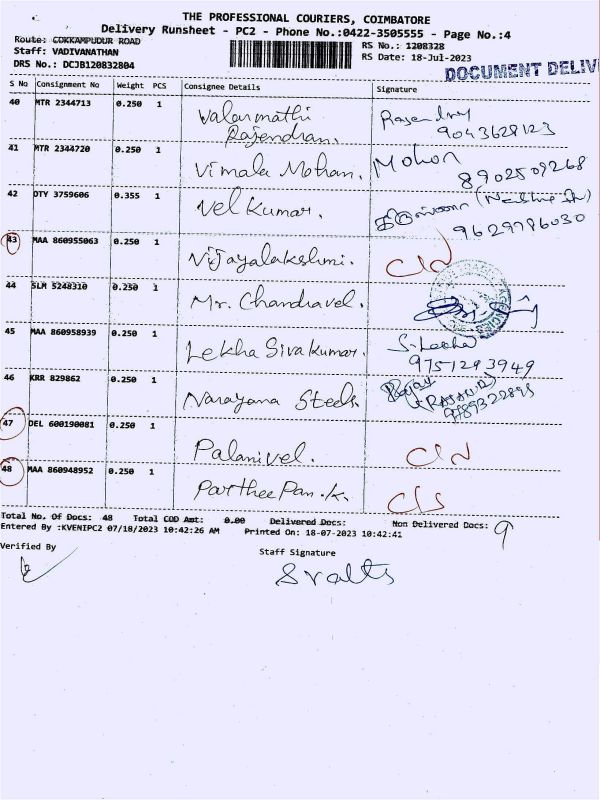 THE PROFESSIONAL COURIERS, COIMBATORE
Delivery Runsheet - PC2 - Phone No.:0422-3505555 - Page No.:4
Route: COKKAMPUDUR ROAD
Staff: VADIVANATHAN
DRS No.: DCJB120832804
RS No.: 1208328
RS Date: 18-Jul-2023
DOCUMENT DELIV
S No Consignment No Weight PCS Consignee Details Signature
40 MTR 2344713 0.250 1 Valarmathi Rajendran.
9043628123
41 MTR 2344720 0.250 1 Vimala Mohan. Mohan
8902509268
42 DTY 3759606 0.355 1 Vel Kumar.
9629986030
43 MAA 860955063 0.250 1 Vijayalakshmi. C/N
44 SLM 5248310 0.250 1 Mr. Chandravel.
45 MAA 860958939 0.250 1 Lekha Siva Kumar. S. Lekha
9751293949
46 KRR 829862 0.250 1 Narayana Steels.
47 DEL 600190081 0.250 1 Palanivel. C/N
48 MAA 860948952 0.250 1 Partheepan.K. C/S
Total No. Of Docs: 48 Total COD Amt: 0.00 Delivered Docs: Non Delivered Docs: 9
Entered By :KVENIPC2 07/18/2023 10:42:26 AM Printed On: 18-07-2023 10:42:41
Verified By
Staff Signature